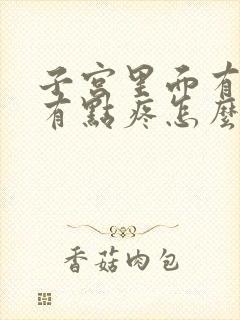 子宫里面有
有點疼怎麼
香菇肉包